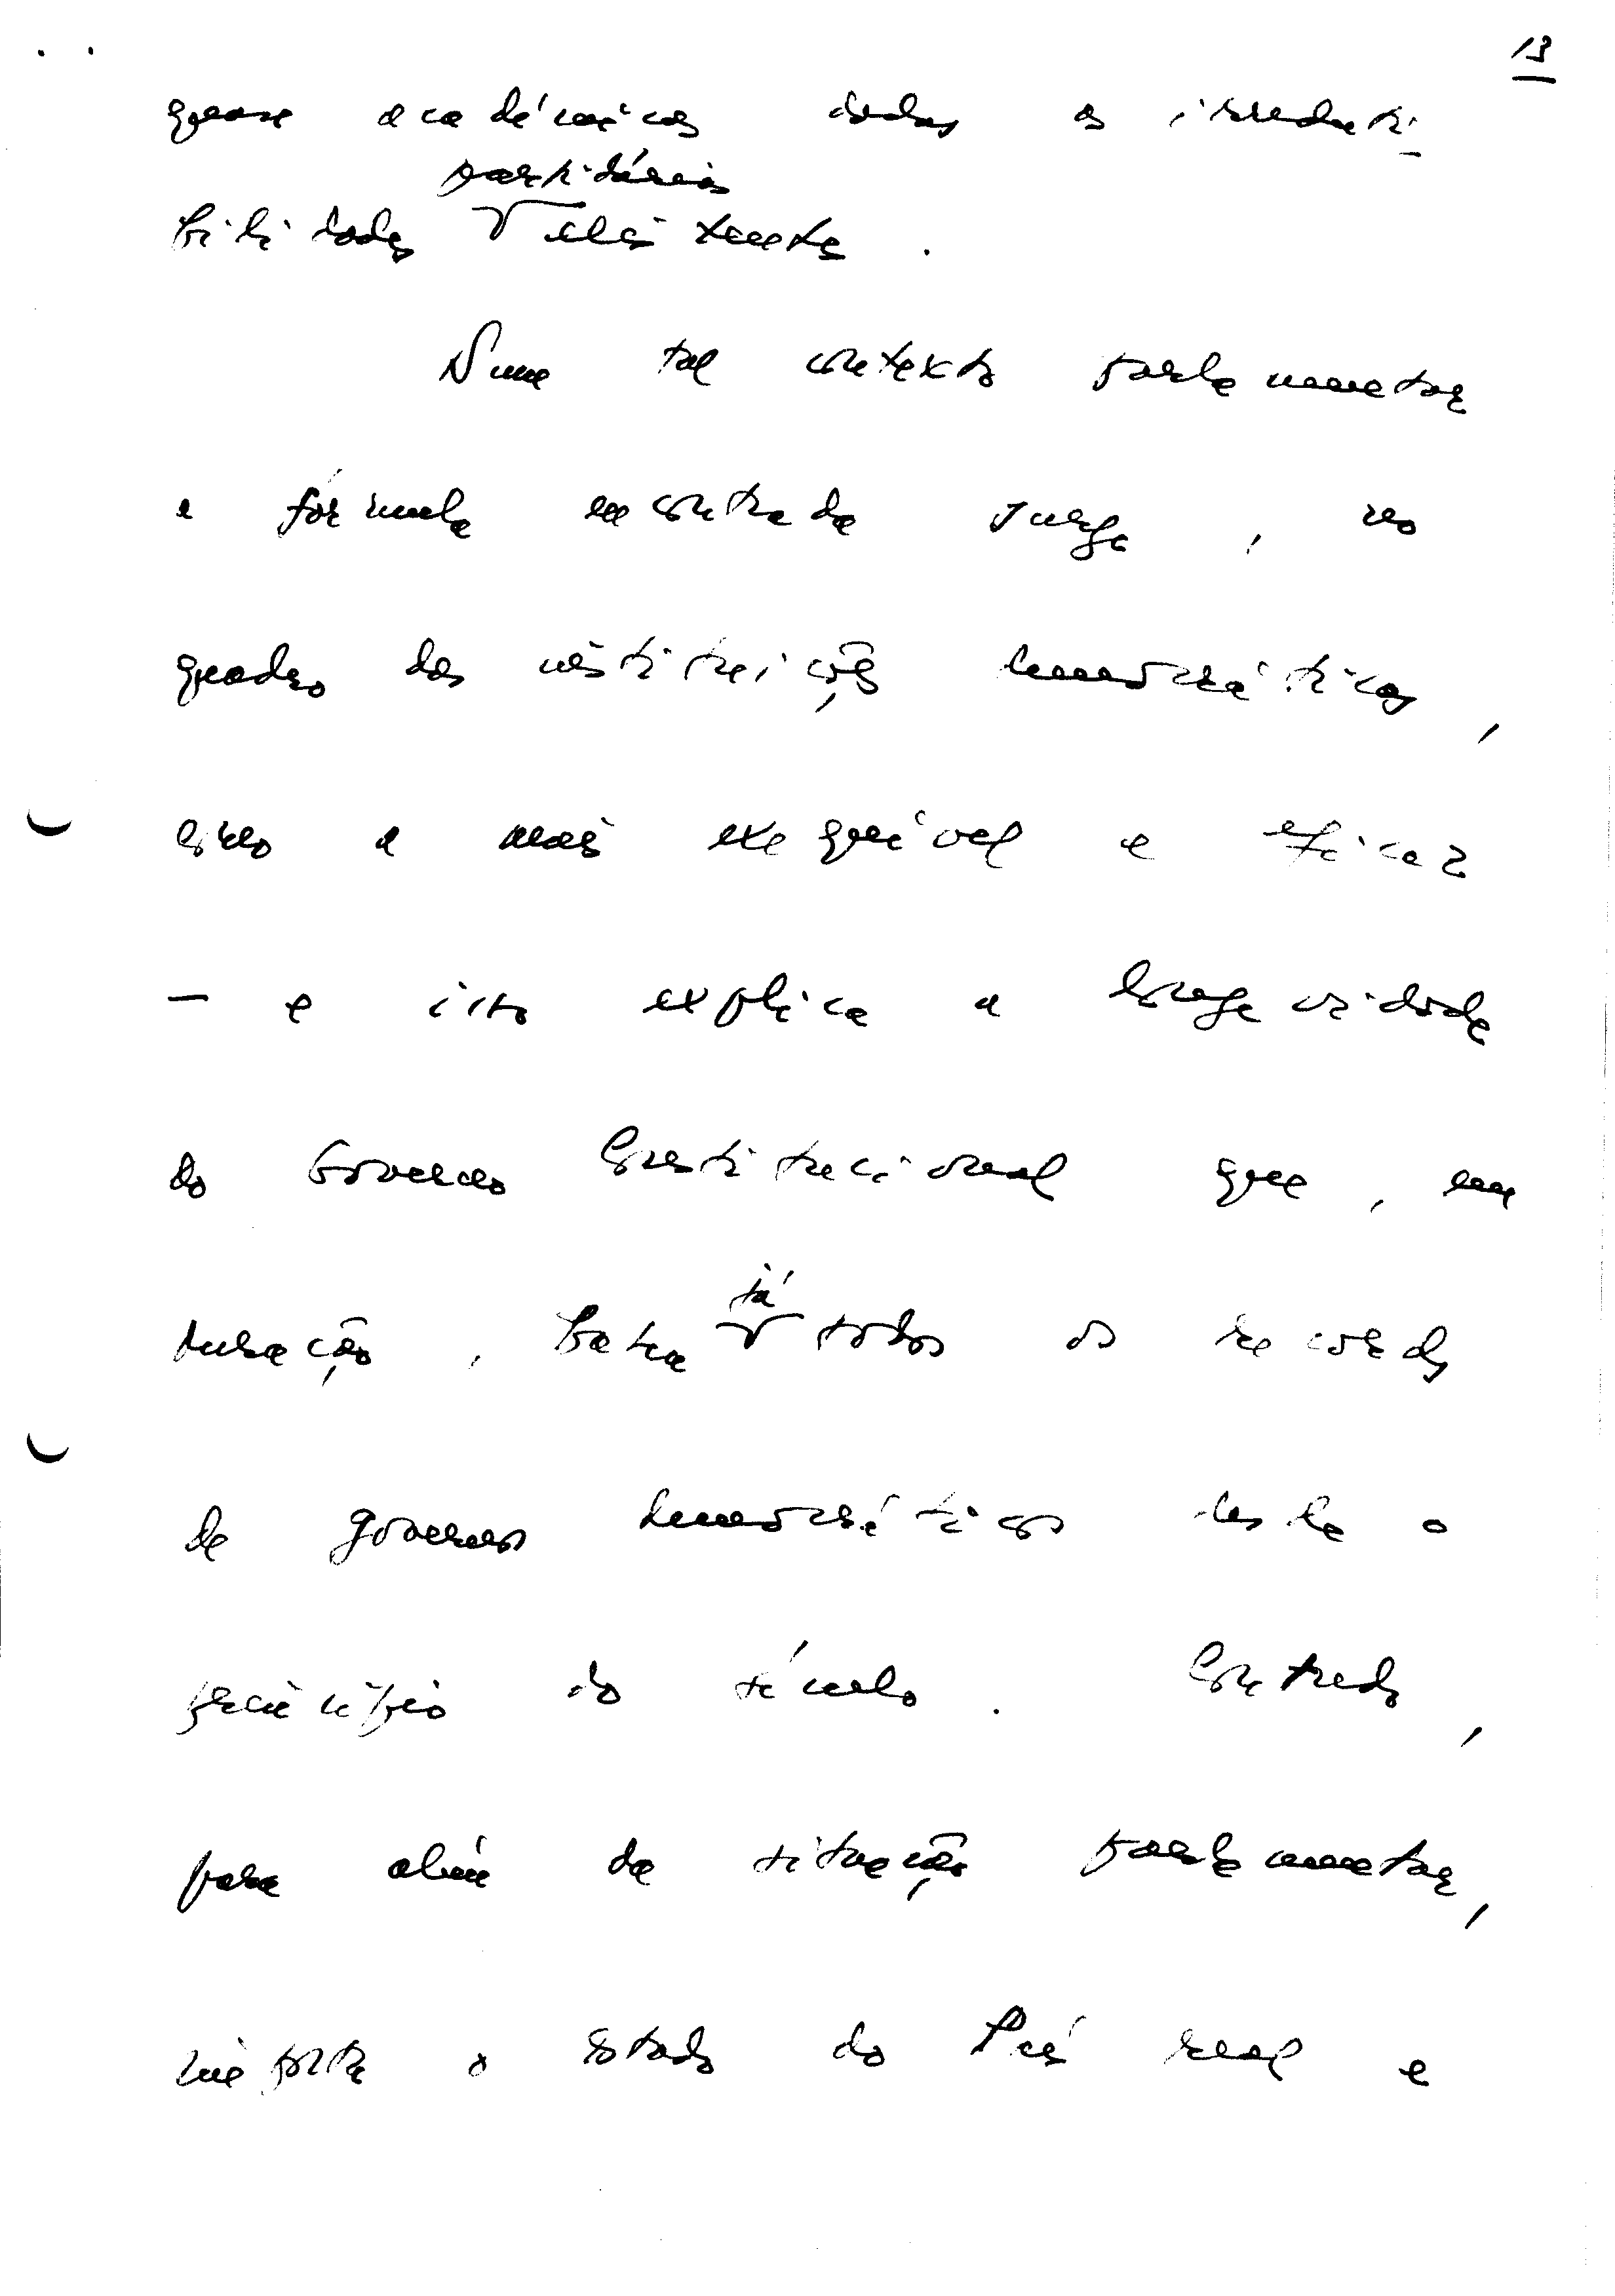 13
quase académicas dadas as irreduti-
partidárias
bilidades existentes.
Num tal contexto parlamentar
a fórmula encontrada surge, no
quadro das instituições democráticas,
como a mais exequível e eficaz
— e isto explica a longevidade
do Governo Constitucional que, em
já
duração, bateu todos os records
de governos democráticos desde o
princípio do século. Contudo,
para além da situação parlamentar,
importa o estado do País real e